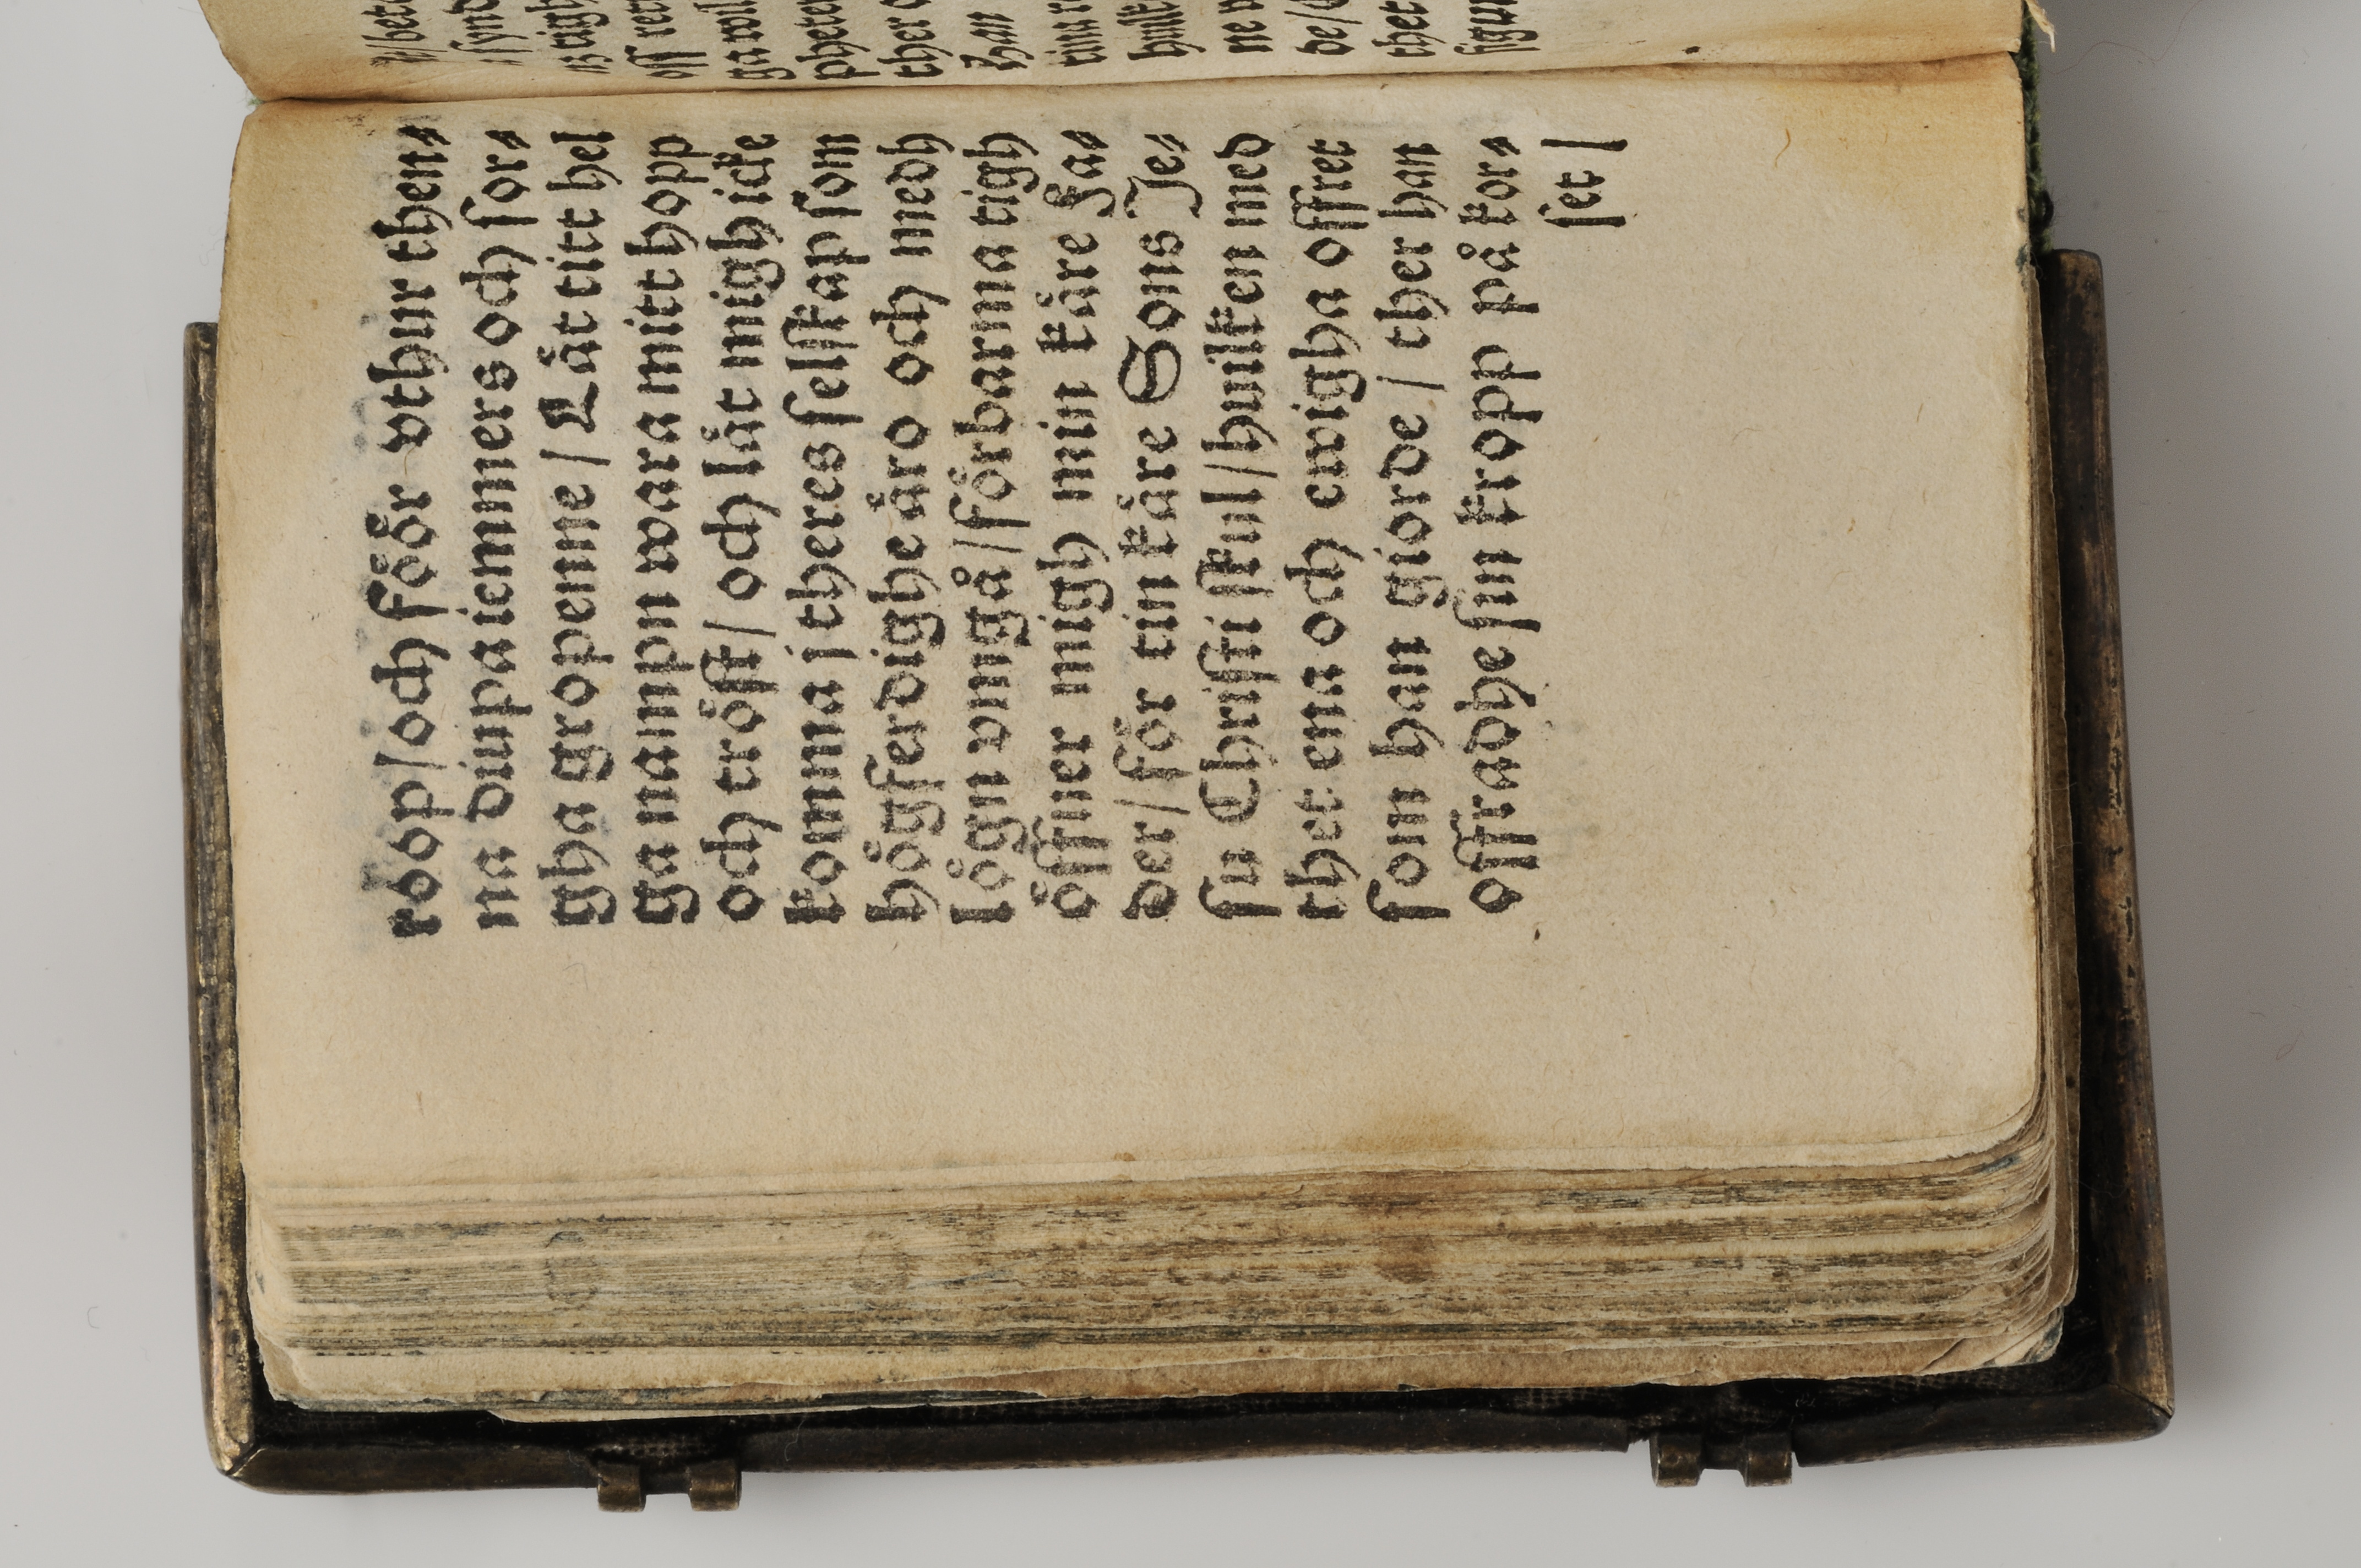 roop/och föör vthur then⸗
na diupa iemmers och sor⸗
gha gropenne / Låt titt hel
ga nampn wara mitt hopp
och tröst / och låt migh icke
komma j theres selskap som
högferdighe äro och medh
lögn vmgå / förbarma tigh
öffuer migh min käre Fa⸗
der / för tin käre Sons Je⸗
su Christi skul / huilken med
thet ena och ewigha offret
som han giorde / ther han
offradhe sin kropp på kor⸗
set /